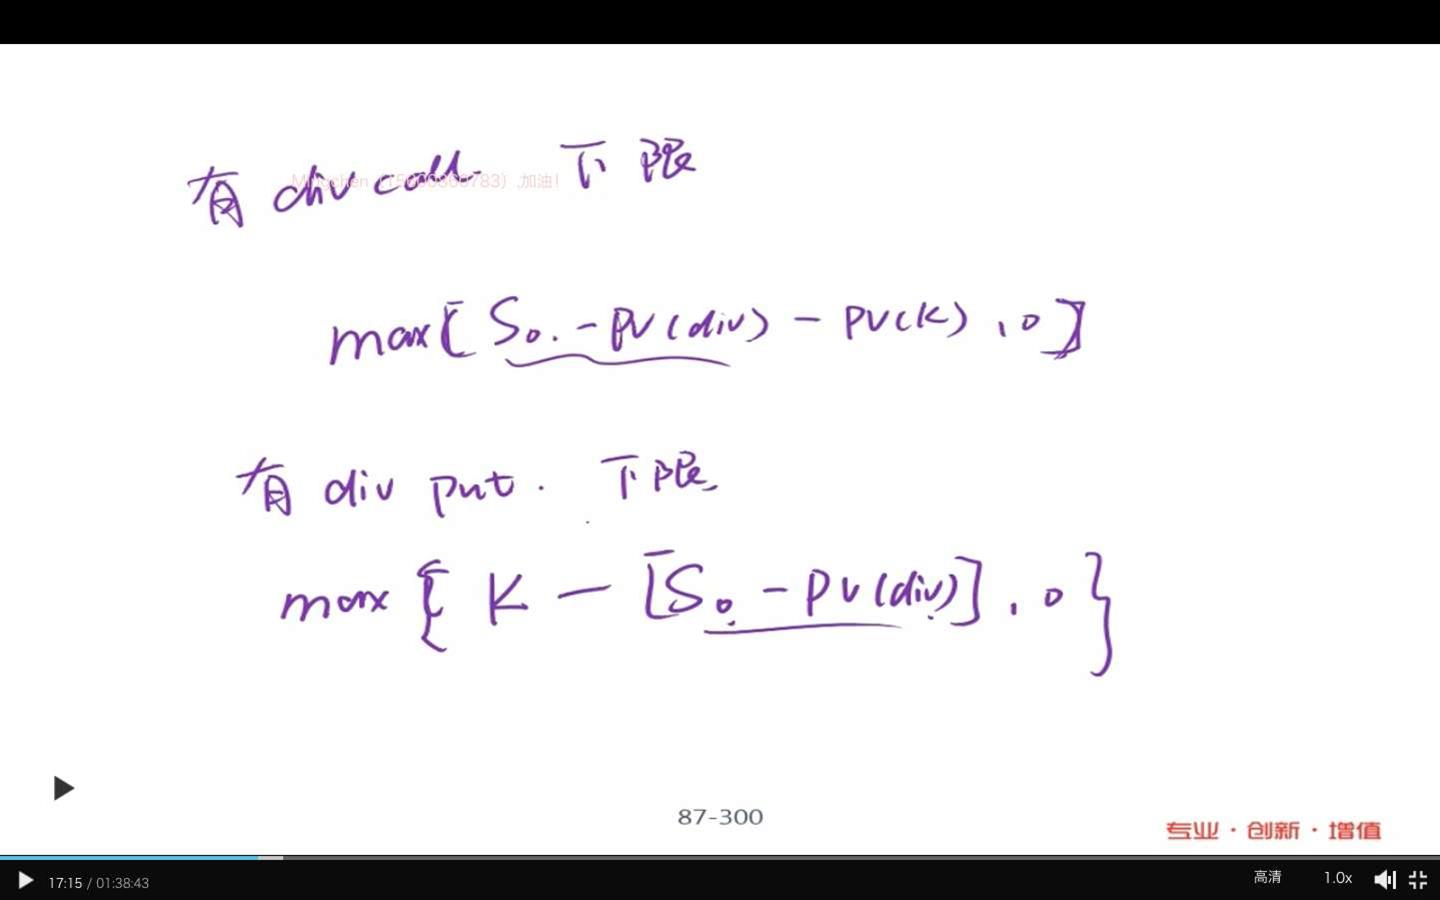 有 div call 下限
max[S₀. - PV(div) - PV(K), 0]
有 div put. 下限
max{K - [S₀ - PV(div)], 0}
87-300
专业·创新·增值
17:15 / 01:38:43
高清
1.0x